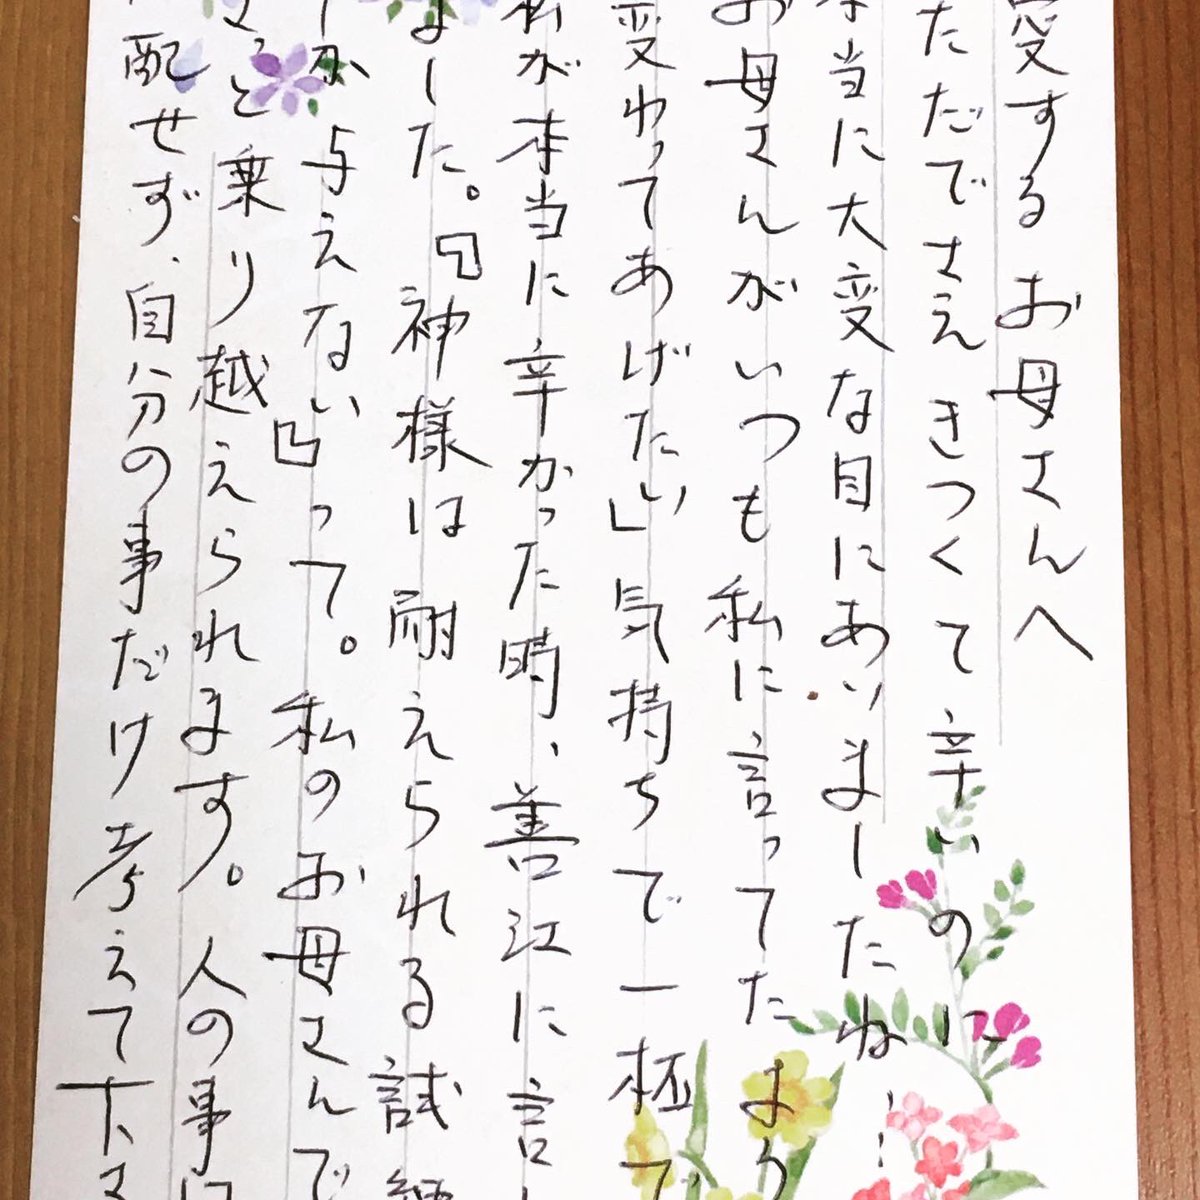 愛するお母さんへ
ただでさえきつくて辛いのに
本当に大変な目にあいましたね…
お母さんがいつも私に言ってたよう
変わってあげたい」気持ちで一杯で
私が本当に辛かった時、善江に言
ました。『神様は耐えられる試練
か与えない』って。私のお母さんで
きっと乗り越えられます。人の事に
配せず、自分の事だけ考えて下さ